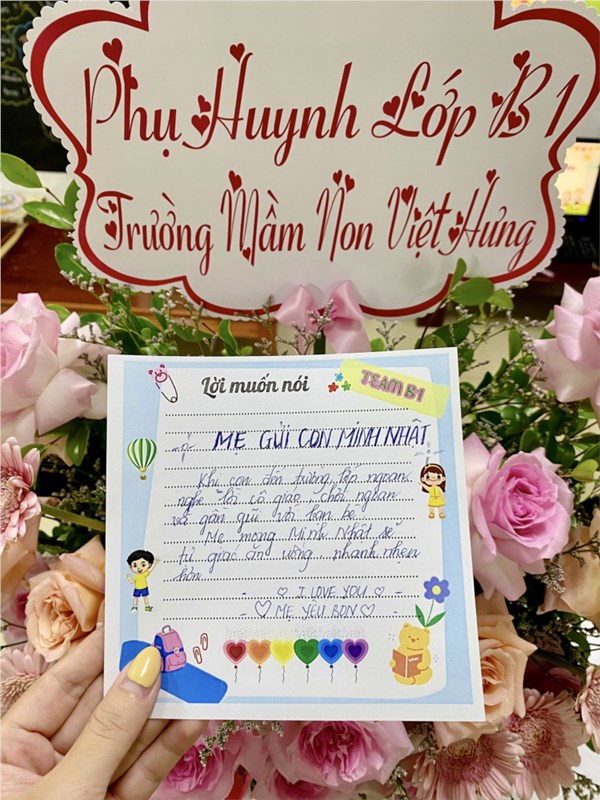 Phụ Huynh Lớp B1
Trường Mầm Non Việt Hưng
Lời muốn nói
TEAM B1
MẸ GỬI CON MINH NHẬT
Khi con đến trường lớp ngoan
nghe lời cô giáo, chơi ngoan
và gần gũi với bạn bè
Mẹ mong Minh Nhật sẽ
tự giác ăn uống nhanh nhẹn
hơn
- ♡ I LOVE YOU ♡ -
- ♡ MẸ YÊU BON ♡ -